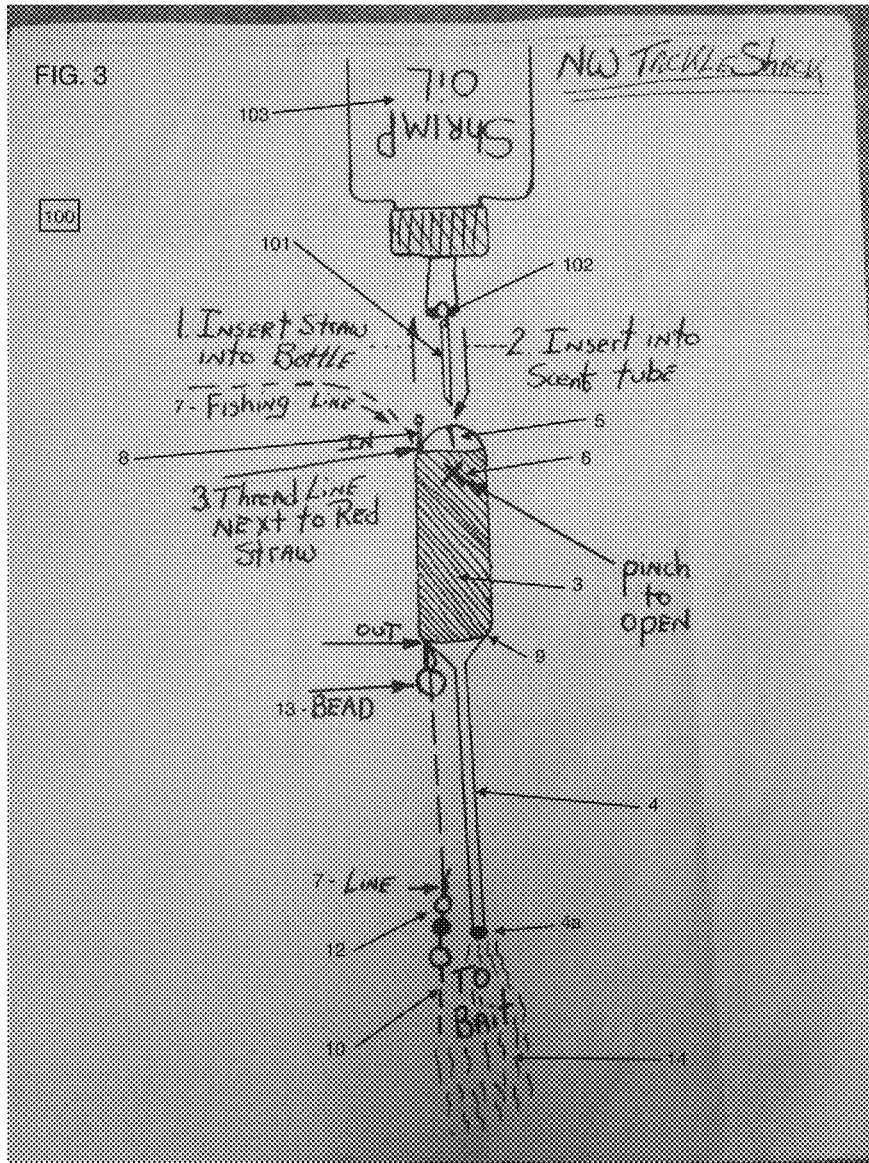 FIG. 3
NW TACKLE SHACK
OIL
SHRIMP
103
100
101
102
1. INSERT STRAW
INTO BOTTLE
2. INSERT INTO
SCENT TUBE
7 - FISHING LINE
8
IN
5
6
3. THREAD LINE
NEXT TO RED
STRAW
3
PINCH
TO
OPEN
OUT
9
13 - BEAD
4
7 - LINE
12
4a
TO
BAIT
10
14